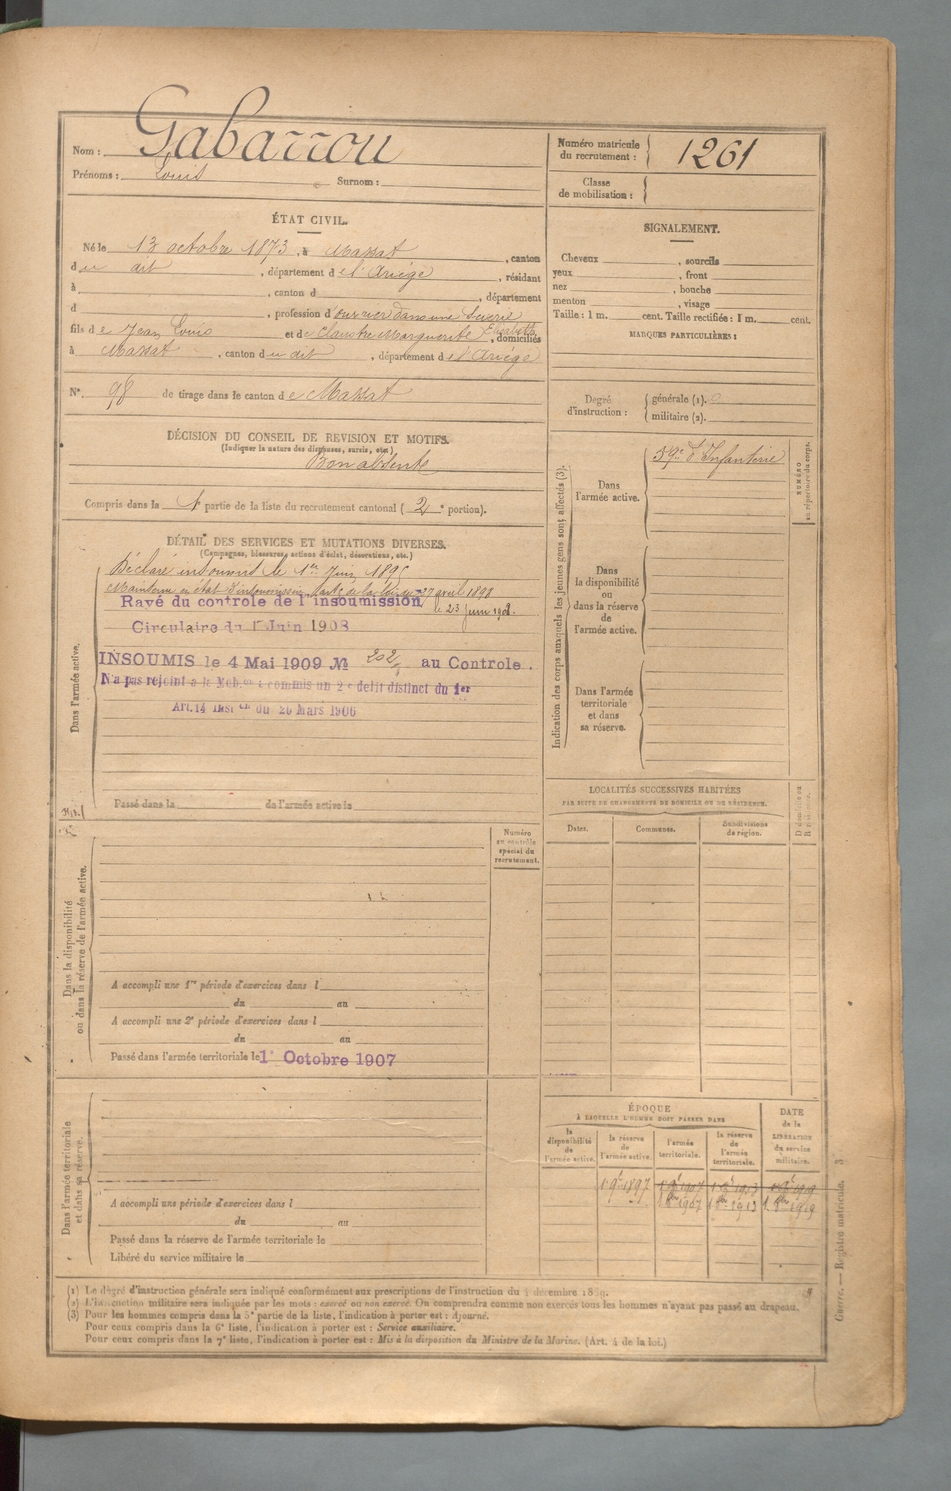 Nom : Gabarrou
Prénoms : Louis Surnom :
Numéro matricule du recrutement : 1261
Classe de mobilisation :
ÉTAT CIVIL.
Né le 13 octobre 1873, à Massat, canton
du dit, département de l'Ariège, résidant
à, canton d, département
d, profession d'ouvrier dans une
fils de Jean Louis et de Claustre Marguerite Elisabeth, domiciliés
à Massat, canton du dit, département de l'Ariège
N° 98 de tirage dans le canton de Massat
DÉCISION DU CONSEIL DE REVISION ET MOTIFS.
(Indiquer la nature des dispenses, sursis, etc.)
Bon absent
Compris dans la 1 partie de la liste du recrutement cantonal (2e portion).
DÉTAIL DES SERVICES ET MUTATIONS DIVERSES.
(Campagnes, blessures, actions d'éclat, décorations, etc.)
Dans l'armée active.
Déclaré insoumis le 1er Juin 1895
Maintenu en état d'insoumission 27 avril 1898
Rayé du controle de l'insoumission le 23 Juin 1908.
Circulaire du 1er Juin 1908
INSOUMIS le 4 Mai 1909 № 202 au Controle.
N'a pas rejoint a la Mob.on : commis un 2e delit distinct du 1er
Art. 14 Inst.on du 20 Mars 1906
Passé dans la de l'armée active le
Dans la disponibilité ou dans la réserve de l'armée active.
Numéro au contrôle spécial du recrutement.
A accompli une 1re période d'exercices dans l
du au
A accompli une 2e période d'exercices dans l
du au
Passé dans l'armée territoriale le 1er Octobre 1907
Dans l'armée territoriale et dans sa réserve.
A accompli une période d'exercices dans l
du au
Passé dans la réserve de l'armée territoriale le
Libéré du service militaire le
SIGNALEMENT.
Cheveux, sourcils
yeux, front
nez, bouche
menton, visage
Taille : 1 m. cent. Taille rectifiée : 1 m. cent.
MARQUES PARTICULIÈRES :
Degré d'instruction : générale (1). 0
militaire (2).
Indication des corps auxquels les jeunes gens sont affectés (3).
Dans l'armée active. 59e d'Infanterie
NUMÉRO au répertoire du corps.
Dans la disponibilité ou dans la réserve de l'armée active.
Dans l'armée territoriale et dans sa réserve.
LOCALITÉS SUCCESSIVES HABITÉES
PAR SUITE DE CHANGEMENTS DE DOMICILE OU DE RÉSIDENCE.
Dates. Communes. Subdivisions de région.
ÉPOQUE
À LAQUELLE L'HOMME DOIT PASSER DANS
DATE de la LIBÉRATION du service militaire.
la disponibilité de l'armée active.
la réserve de l'armée active.
l'armée territoriale.
la réserve de l'armée territoriale.
1897 1907 1913 1919
1907 1913 1919
(1) Le dégré d'instruction générale sera indiqué conformément aux prescriptions de l'instruction du 4 décembre 1889.
(2) L'instruction militaire sera indiquée par les mots : exercé ou non exercé. On comprendra comme non exercés tous les hommes n'ayant pas passé au drapeau.
(3) Pour les hommes compris dans la 5e partie de la liste, l'indication à porter est : Ajourné.
Pour ceux compris dans la 6e liste, l'indication à porter est : Service auxiliaire.
Pour ceux compris dans la 7e liste, l'indication à porter est : Mis à la disposition du Ministre de la Marine. (Art. 4 de la loi.)
Guerre. — Registre matricule. 3